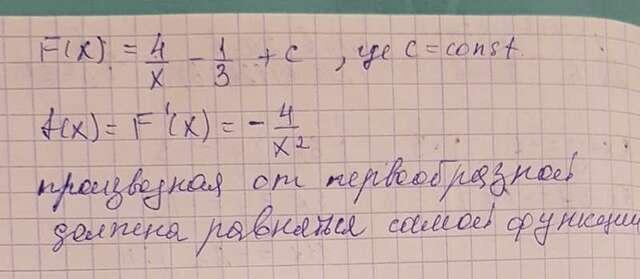 F(x) = 4/x - 1/3 + c, где c = const.
f(x) = F'(x) = - 4/x²
производная от первообразной
должна равняться самой функции